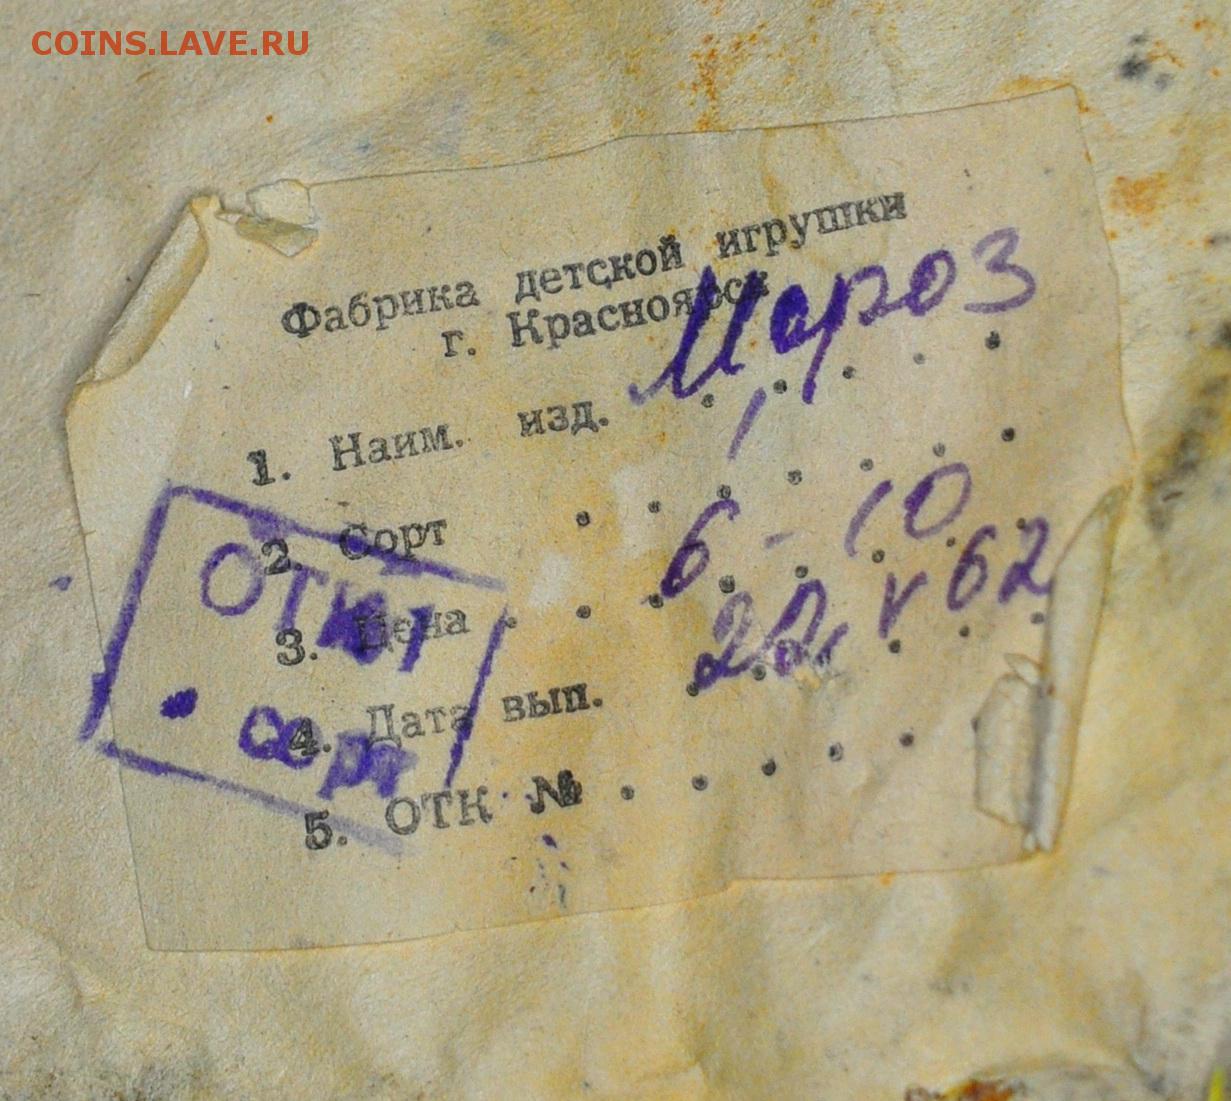 COINS.LAVE.RU
Фабрика детской игрушки
г. Красноярск
1. Наим. изд. Мороз
2. Сорт . . . 1 . . . .
3. Цена . . . 6-10
4. Дата вып. 22 V 62
5. ОТК № . . . . .
ОТК 1
сорт